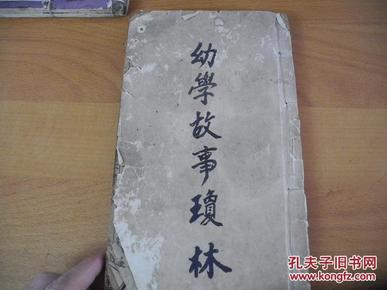 幼學故事瓊林
孔夫子旧书网
KONGFZ.COM